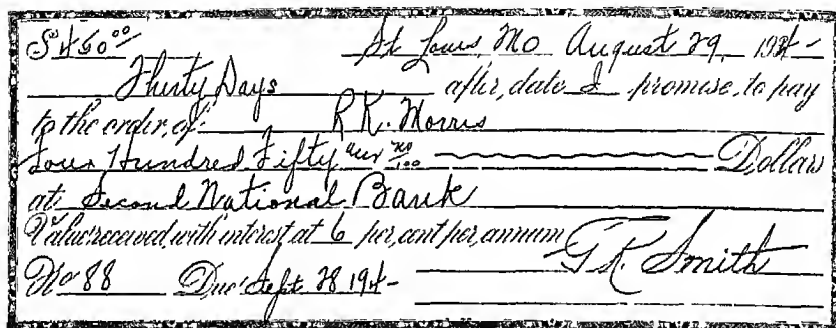 $450 00/ St Louis, Mo August 29, 19
Thirty Days after date I promise to pay
to the order of R K. Morris
Four Hundred Fifty and no/100 Dollars
at Second National Bank
Value received, with interest at 6 per cent per annum
No 88 Due Sept 28 19 G. K. Smith